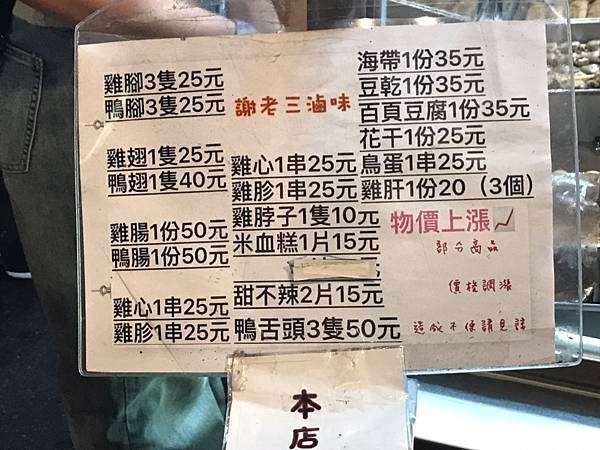 雞腳3隻25元
鴨腳3隻25元
雞翅1隻25元
鴨翅1隻40元
雞腸1份50元
鴨腸1份50元
雞心1串25元
雞胗1串25元
謝老三滷味
雞心1串25元
雞胗1串25元
雞脖子1隻10元
米血糕1片15元
甜不辣2片15元
鴨舌頭3隻50元
海帶1份35元
豆乾1份35元
百頁豆腐1份35元
花干1份25元
鳥蛋1串25元
雞肝1份20（3個）
物價上漲
部分商品
價格調漲
造成不便請見諒
本店